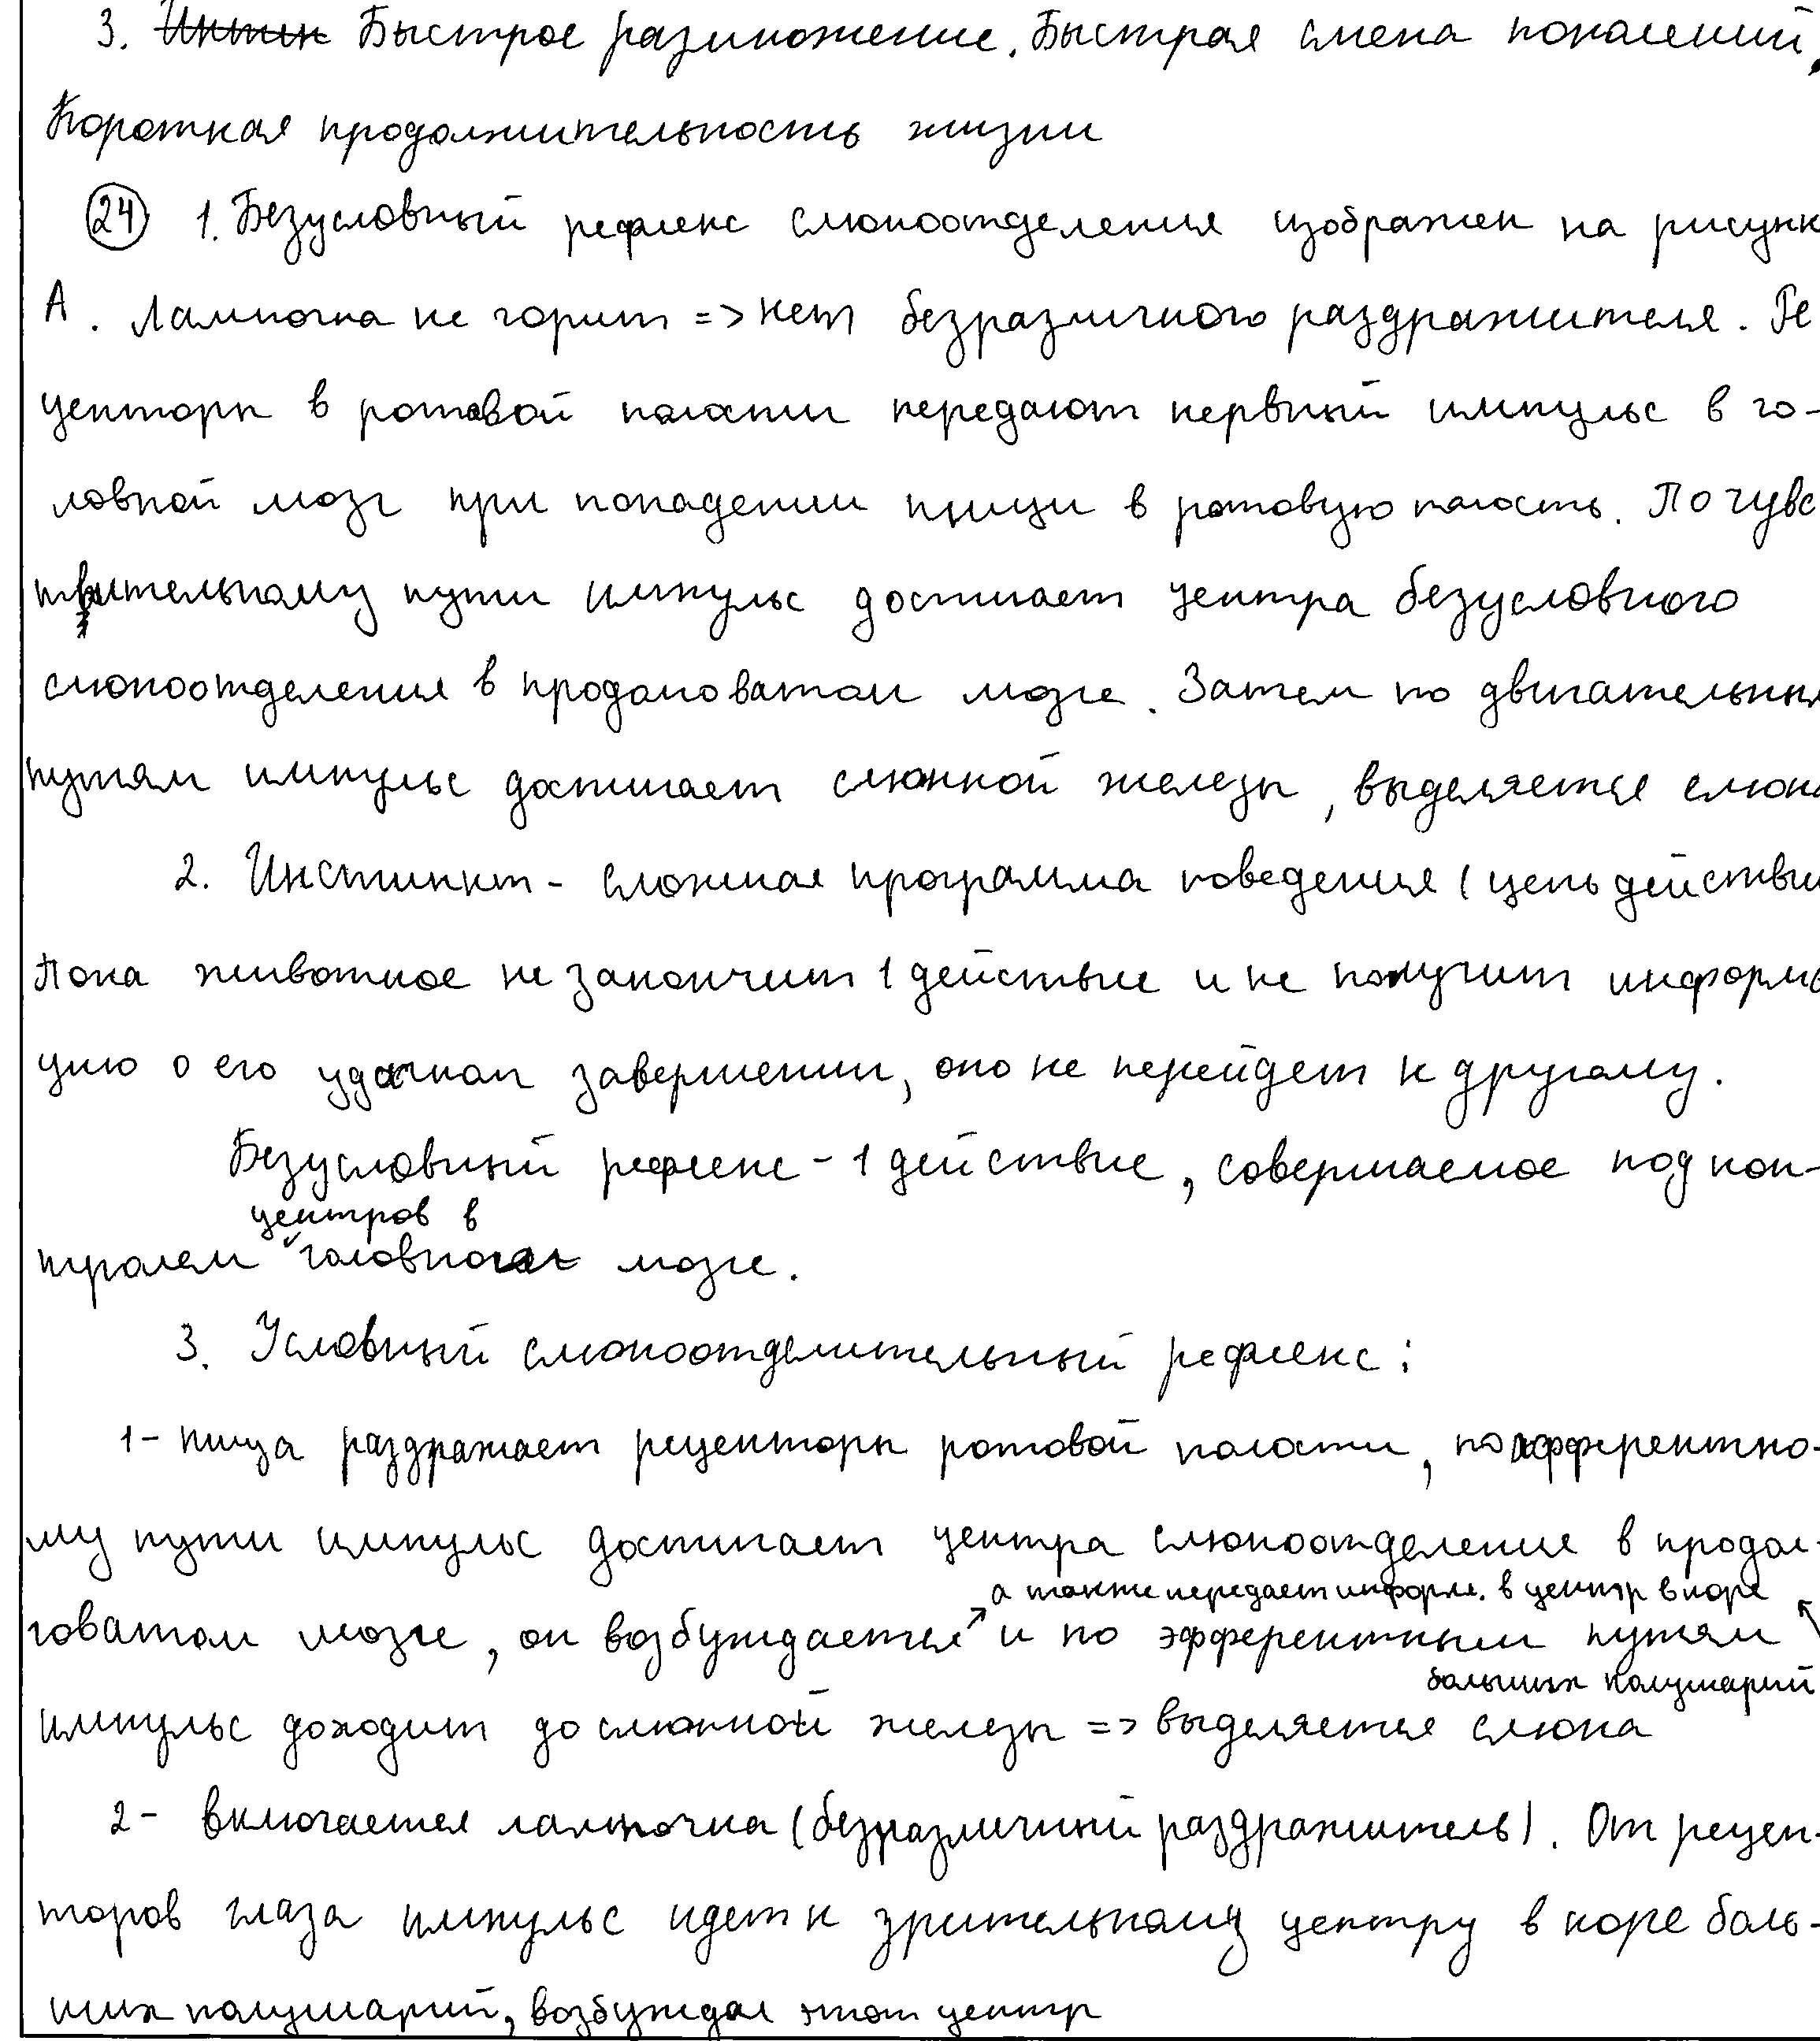 3. Интен Быстрое размножение. Быстрая смена поколений,
Короткая продолжительность жизни
24 1. Безусловный рефлекс слюноотделения изображен на рисунк
А. Лампочка не горит => нет безразличного раздражителя. Ре
цепторы в ротовой полости передают нервный импульс в го-
ловной мозг при попадении пищи в ротовую полость. По чувс
твительному пути импульс достигает центра безусловного
слюноотделения в продолговатом мозге. Затем по двигательны
путям импульс достигает слюнной железы, выделяется слюна
2. Инстинкт - сложная программа поведения (цепь действи
Пока животное не закончит 1 действие и не получит информа
цию о его удачном завершении, оно не перейдет к другому.
Безусловный рефлекс - 1 действие, совершаемое под кон-
центров в
тролем головного мозге.
3. Условный слюноотделительный рефлекс:
1- пища раздражает рецепторы ротовой полости, по афферентно-
му пути импульс достигает центра слюноотделение в продол-
а также передает информ. в центр в коре
говатом мозге, он возбуждается и по эфферентным путям
больших полушарий
импульс доходит до слюнной железы => выделяется слюна
2- включается лампочка (безразличный раздражитель). От рецеп-
торов глаза импульс идет к зрительному центру в коре боль-
ших полушарий, возбуждая этот центр